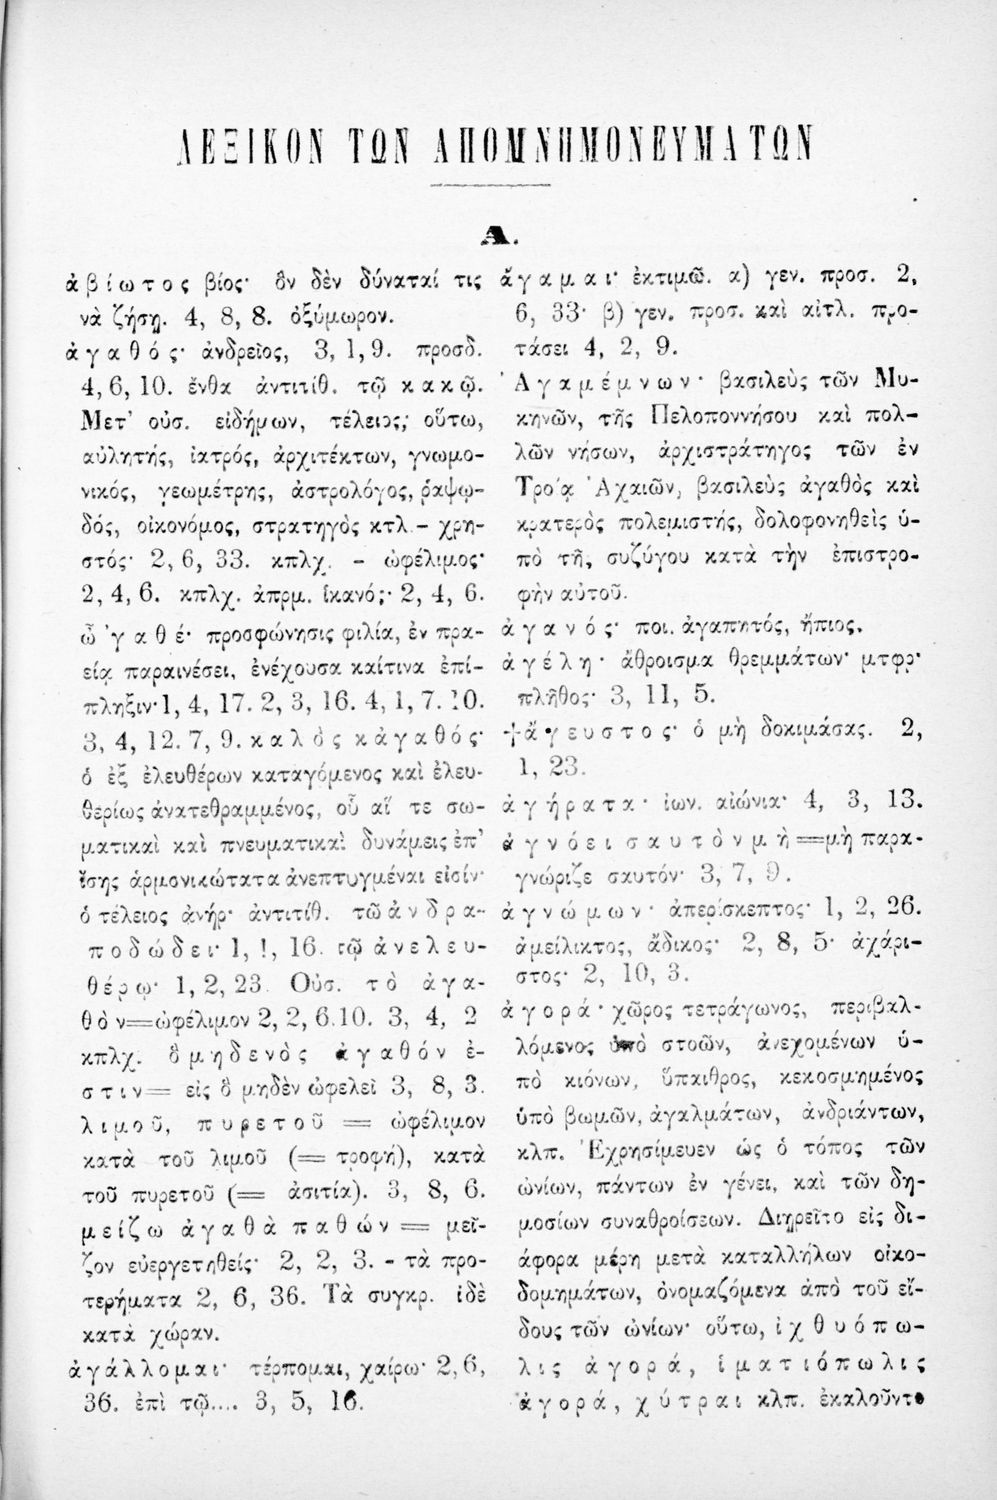 ΛΕΞΙΚΟΝ ΤΩΝ ΑΠΟΜΝΗΜΟΝΕΥΜΑΤΩΝ
Α.
ἀβίωτος βίος· ὃν δὲν δύναταί τις
νὰ ζήσῃ. 4, 8, 8. ὀξύμωρον.
ἀγαθός· ἀνδρεῖος, 3, 1, 9. προσδ.
4, 6, 10. ἔνθα ἀντιτίθ. τῷ κακῷ.
Μετ' οὐσ. εἰδήμων, τέλειος; οὕτω,
αὐλητής, ἰατρός, ἀρχιτέκτων, γνωμο-
νικός, γεωμέτρης, ἀστρολόγος, ῥαψῳ-
δός, οἰκονόμος, στρατηγὸς κτλ - χρη-
στός· 2, 6, 33. κπλχ. - ὠφέλιμος·
2, 4, 6. κπλχ. ἀπρμ. ἱκανός· 2, 4, 6.
ὦ 'γαθέ· προσφώνησις φιλία, ἐν πρα-
είᾳ παραινέσει, ἐνέχουσα καίτινα ἐπί-
πληξιν· 1, 4, 17. 2, 3, 16. 4, 1, 7. 10.
3, 4, 12. 7, 9. καλὸς κἀγαθός·
ὁ ἐξ ἐλευθέρων καταγόμενος καὶ ἐλευ-
θερίως ἀνατεθραμμένος, οὗ αἵ τε σω-
ματικαὶ καὶ πνευματικαὶ δυνάμεις ἐπ'
ἴσης ἁρμονικώτατα ἀνεπτυγμέναι εἰσίν·
ὁ τέλειος ἀνήρ· ἀντιτίθ. τῶ ἀνδρα-
ποδώδει· 1, 1, 16. τῷ ἀνελευ-
θέρῳ· 1, 2, 23. Οὐσ. τὸ ἀγα-
θὸν=ὠφέλιμον 2, 2, 6. 10. 3, 4, 2
κπλχ. ὃ μηδενὸς ἀγαθόν ἐ-
στιν= εἰς ὃ μηδὲν ὠφελεῖ 3, 8, 3.
λιμοῦ, πυρετοῦ = ὠφέλιμον
κατὰ τοῦ λιμοῦ (= τροφή), κατὰ
τοῦ πυρετοῦ (= ἀσιτία). 3, 8, 6.
μείζω ἀγαθὰ παθών = μεῖ-
ζον εὐεργετηθείς· 2, 2, 3. - τὰ προ-
τερήματα 2, 6, 36. Τὰ συγκρ. ἰδὲ
κατὰ χώραν.
ἀγάλλομαι· τέρπομαι, χαίρω· 2, 6,
36. ἐπὶ τῷ.... 3, 5, 16.
ἄγαμαι· ἐκτιμῶ. α) γεν. προσ. 2,
6, 33· β) γεν. προσ. καὶ αἰτλ. προ-
τάσει 4, 2, 9.
Ἀγαμέμνων· βασιλεὺς τῶν Μυ-
κηνῶν, τῆς Πελοποννήσου καὶ πολ-
λῶν νήσων, ἀρχιστράτηγος τῶν ἐν
Τροίᾳ Ἀχαιῶν, βασιλεὺς ἀγαθὸς καὶ
κρατερὸς πολεμιστής, δολοφονηθεὶς ὑ-
πὸ τῆς συζύγου κατὰ τὴν ἐπιστρο-
φὴν αὐτοῦ.
ἀγανός· ποι. ἀγαπητός, ἤπιος.
ἀγέλη· ἄθροισμα θρεμμάτων· μτφρ·
πλῆθος· 3, 11, 5.
†ἄγευστος· ὁ μὴ δοκιμάσας. 2,
1, 23.
ἀγήρατα· ἰων. αἰώνια· 4, 3, 13.
ἀγνόει σαυτὸν μὴ=μὴ παρα-
γνώριζε σαυτόν· 3, 7, 9.
ἀγνώμων· ἀπερίσκεπτος· 1, 2, 26.
ἀμείλικτος, ἄδικος· 2, 8, 5· ἀχάρι-
στος· 2, 10, 3.
ἀγορά· χῶρος τετράγωνος, περιβαλ-
λόμενος ὑπὸ στοῶν, ἀνεχομένων ὑ-
πὸ κιόνων, ὕπαιθρος, κεκοσμημένος
ὑπὸ βωμῶν, ἀγαλμάτων, ἀνδριάντων,
κλπ. Ἐχρησίμευεν ὡς ὁ τόπος τῶν
ὠνίων, πάντων ἐν γένει, καὶ τῶν δη-
μοσίων συναθροίσεων. Διῃρεῖτο εἰς δι-
άφορα μέρη μετὰ καταλλήλων οἰκο-
δομημάτων, ὀνομαζόμενα ἀπὸ τοῦ εἴ-
δους τῶν ὠνίων· οὕτω, ἰχθυόπω-
λις ἀγορά, ἱματιόπωλις
ἀγορά, χύτραι κλπ. ἐκαλοῦντο